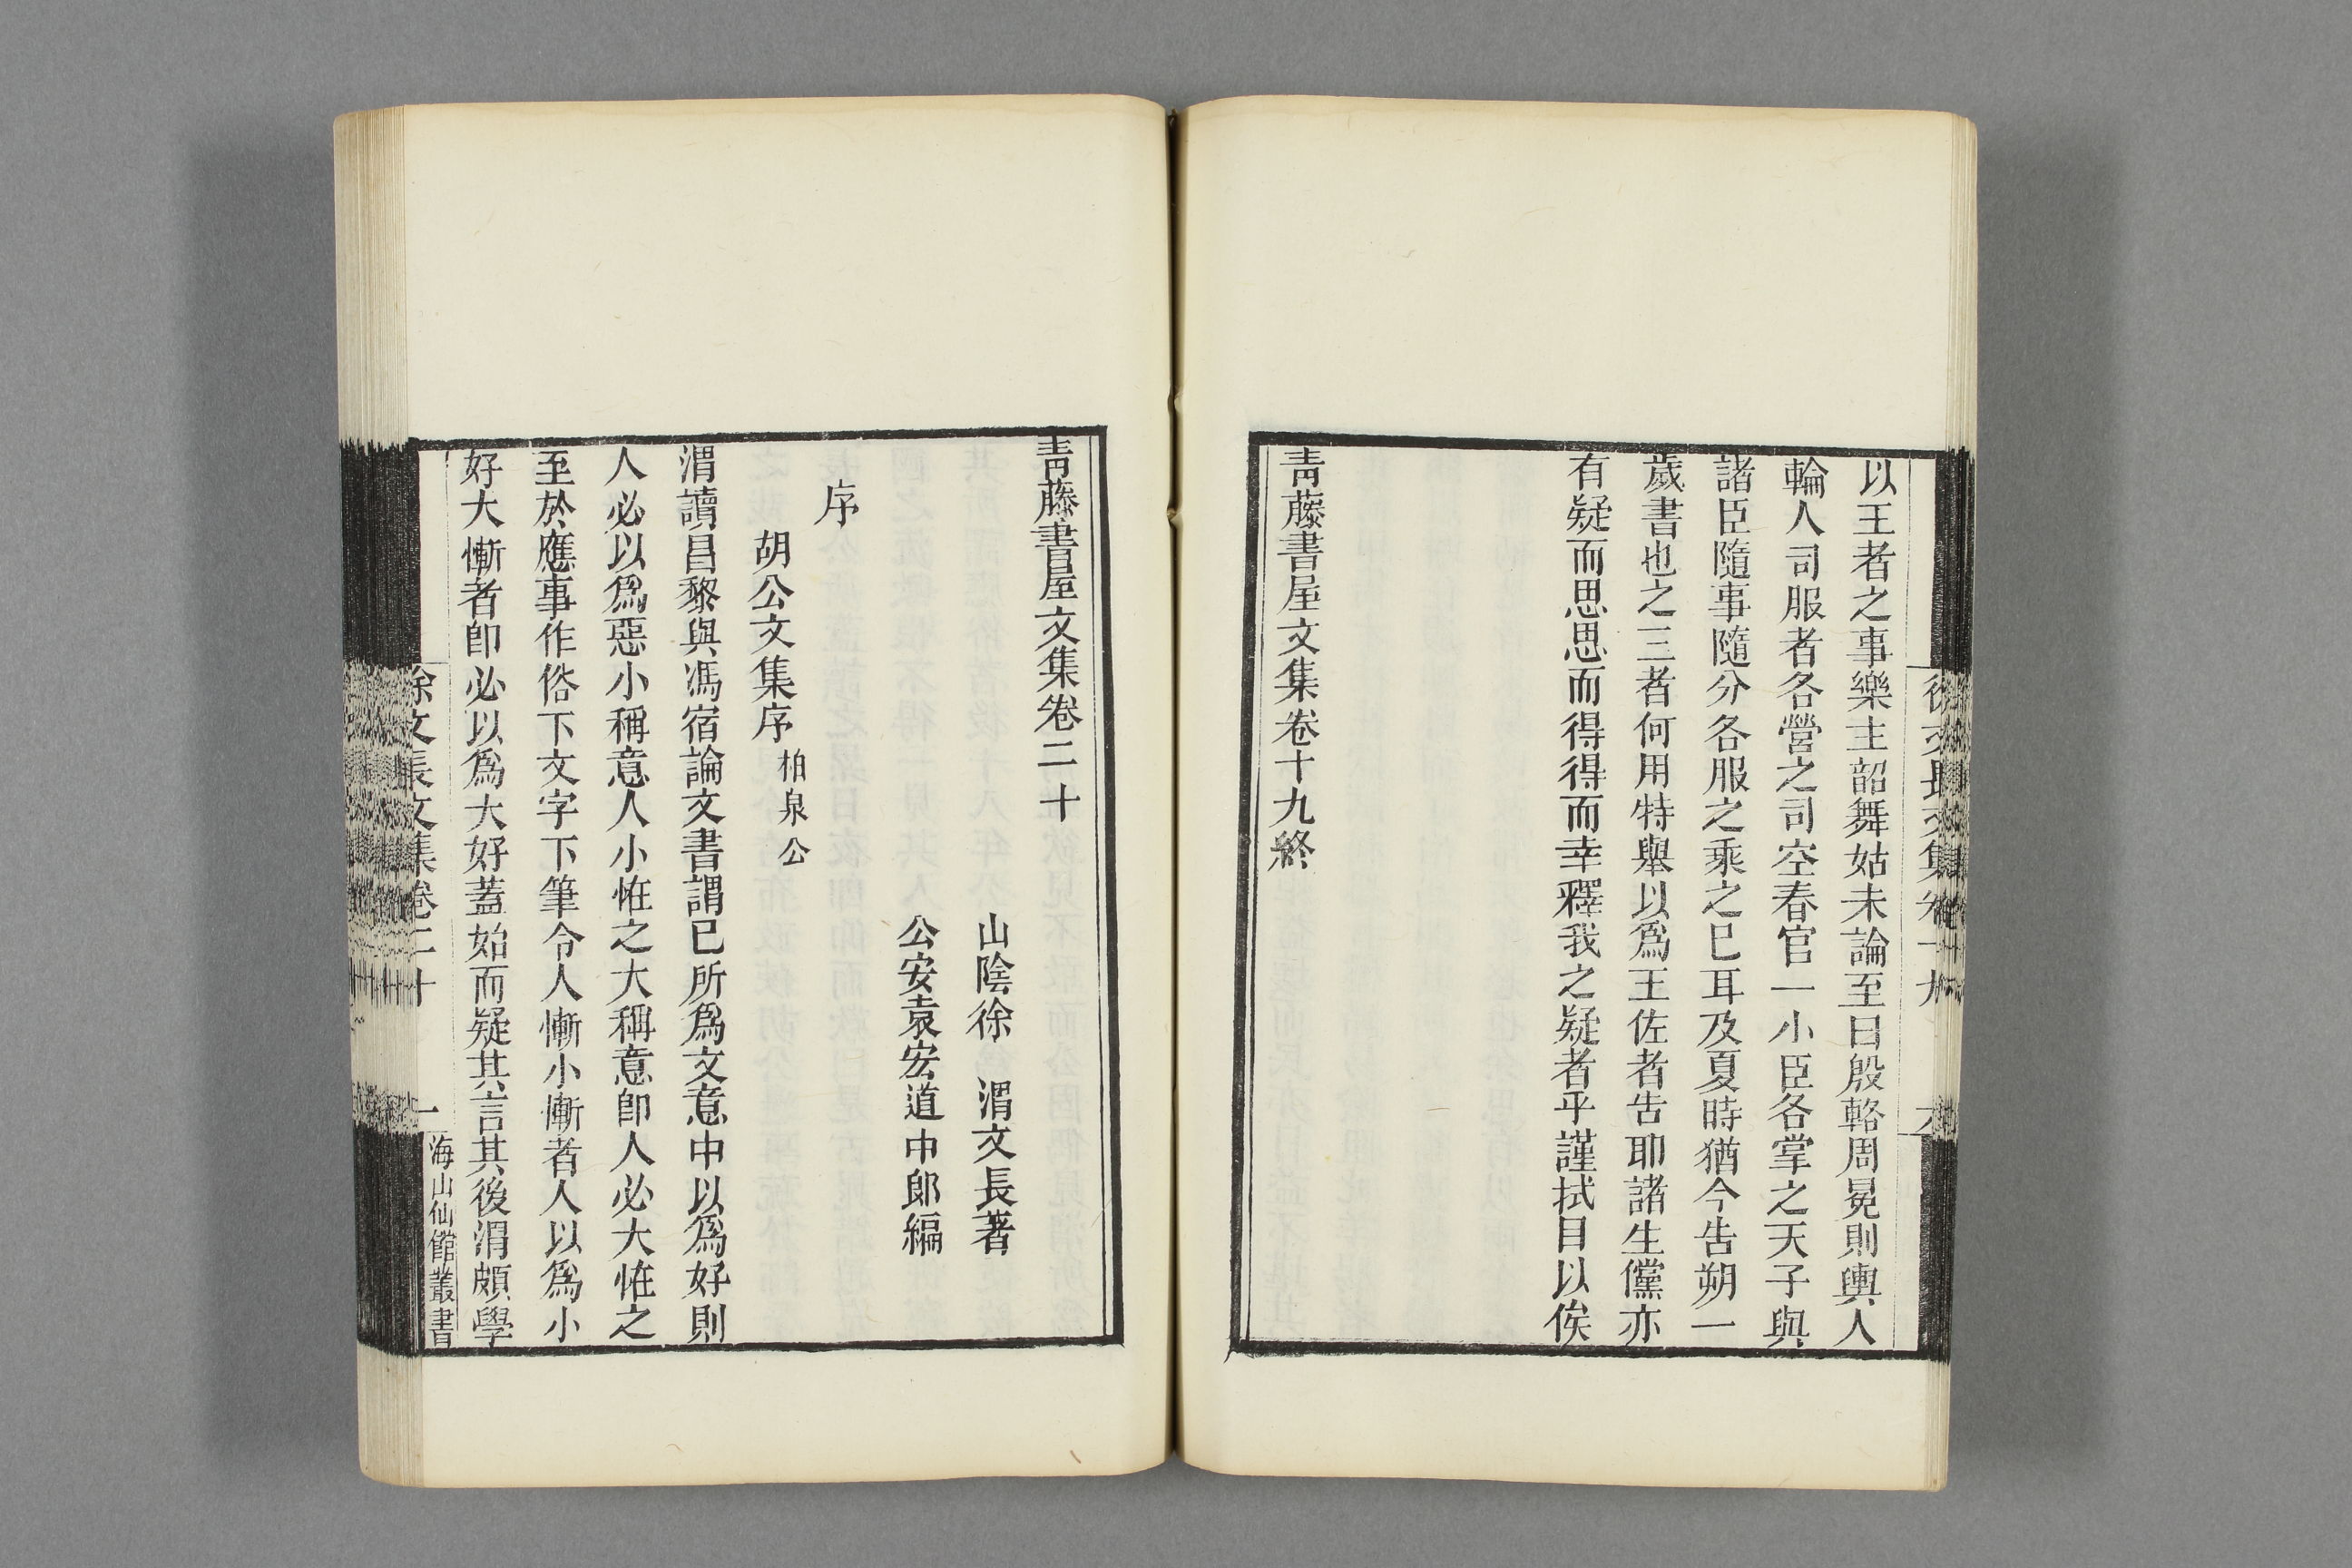 以王者之事樂主韶舞姑未論至曰殷輅周冕則輿人
輪人司服者各營之司空春官一小臣各掌之天子與
諸臣隨事隨分各服之乘之已耳及夏時猶今告朔一
歲書也之三者何用特舉以爲王佐者告耶諸生儻亦
有疑而思思而得得而幸釋我之疑者乎謹拭目以俟
靑藤書屋文集卷十九終
靑藤書屋文集卷二十
山陰徐 渭文長著
公安袁宏道中郎編
序
胡公文集序柏泉公
渭讀昌黎與馮宿論文書謂已所爲文意中以爲好則
人必以爲惡小稱意人小怪之大稱意卽人必大怪之
至於應事作俗下文字下筆令人慚小慚者人以爲小
好大慚者卽必以爲大好蓋始而疑其言其後渭頗學
徐文長文集卷二十 一
海山仙館叢書